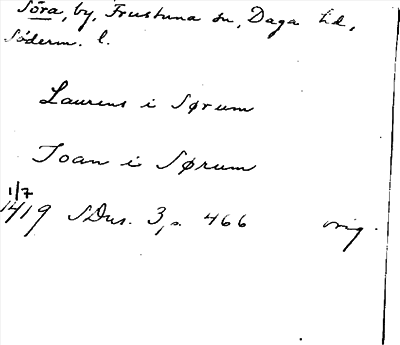 Söra, by, Frustuna sn, Daga hd,
Söderm. l.
Laurens i Sørum
Joan i Sørum
1/7
1419 SDns. 3, s. 466 orig.